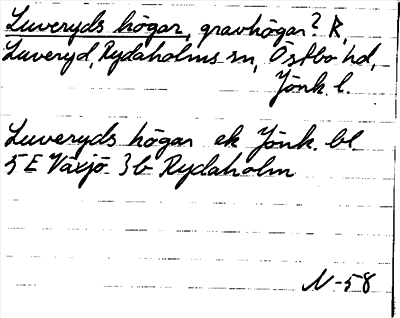 Luveryds högar, gravhögar? R,
Luveryd, Rydaholms sn, Östbo hd,
Jönk. l.
Luveryds högar ek Jönk. bl.
5 E Växjö 3b Rydaholm
N-58